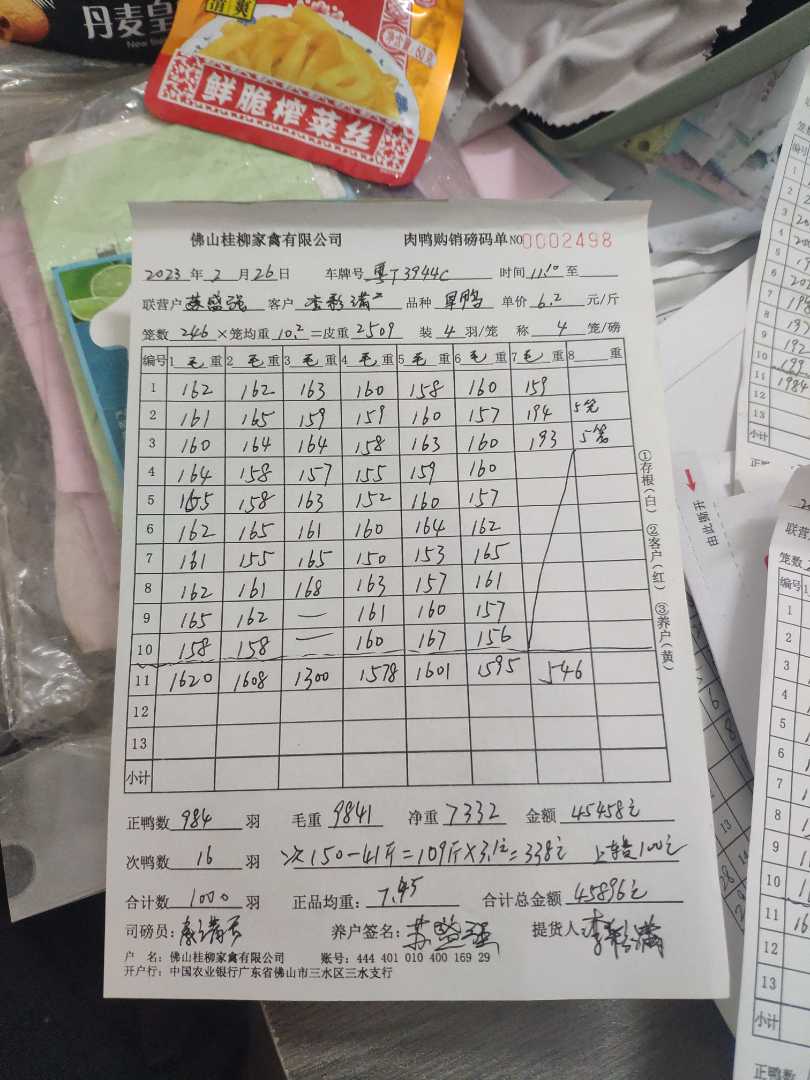 丹麦皇
清爽
净含量：60克
鲜脆榨菜丝
佛山桂柳家禽有限公司 肉鸭购销磅码单 NO 0002498
2023 年 2 月 26 日 车牌号 粤T3944C 时间 11:10 至
联营户 苏盛强 客户 品种 单价 6.2 元/斤
笼数 246 ×笼均重 10.2 =皮重 2509 装 4 羽/笼 称 4 笼/磅
编号 1 毛 重 2 毛 重 3 毛 重 4 毛 重 5 毛 重 6 毛 重 7 毛 重 8 重
1 162 162 163 160 158 160 159
2 161 165 159 159 160 157 194 5笼
3 160 164 164 158 163 160 193 5笼
4 164 158 157 155 159 160
5 155 158 163 152 160 157
6 162 165 161 160 164 162
7 161 155 165 150 153 165
8 162 161 168 163 157 161
9 165 162 — 161 160 157
10 158 158 — 160 167 156
11 1620 1608 1300 1578 1601 1595 546
12
13
小计
①存根(白) ②客户(红) ③养户(黄)
正鸭数 984 羽 毛重 9841 净重 7332 金额 45458元
次鸭数 16 羽 次150-41斤=109斤×3.1元=338元 100元
合计数 1000 羽 正品均重: 7.45 合计总金额 45896元
司磅员: 养户签名: 苏盛强 提货人
户 名: 佛山桂柳家禽有限公司 账号: 444 401 010 400 169 29
开户行: 中国农业银行广东省佛山市三水区三水支行
由此撕开